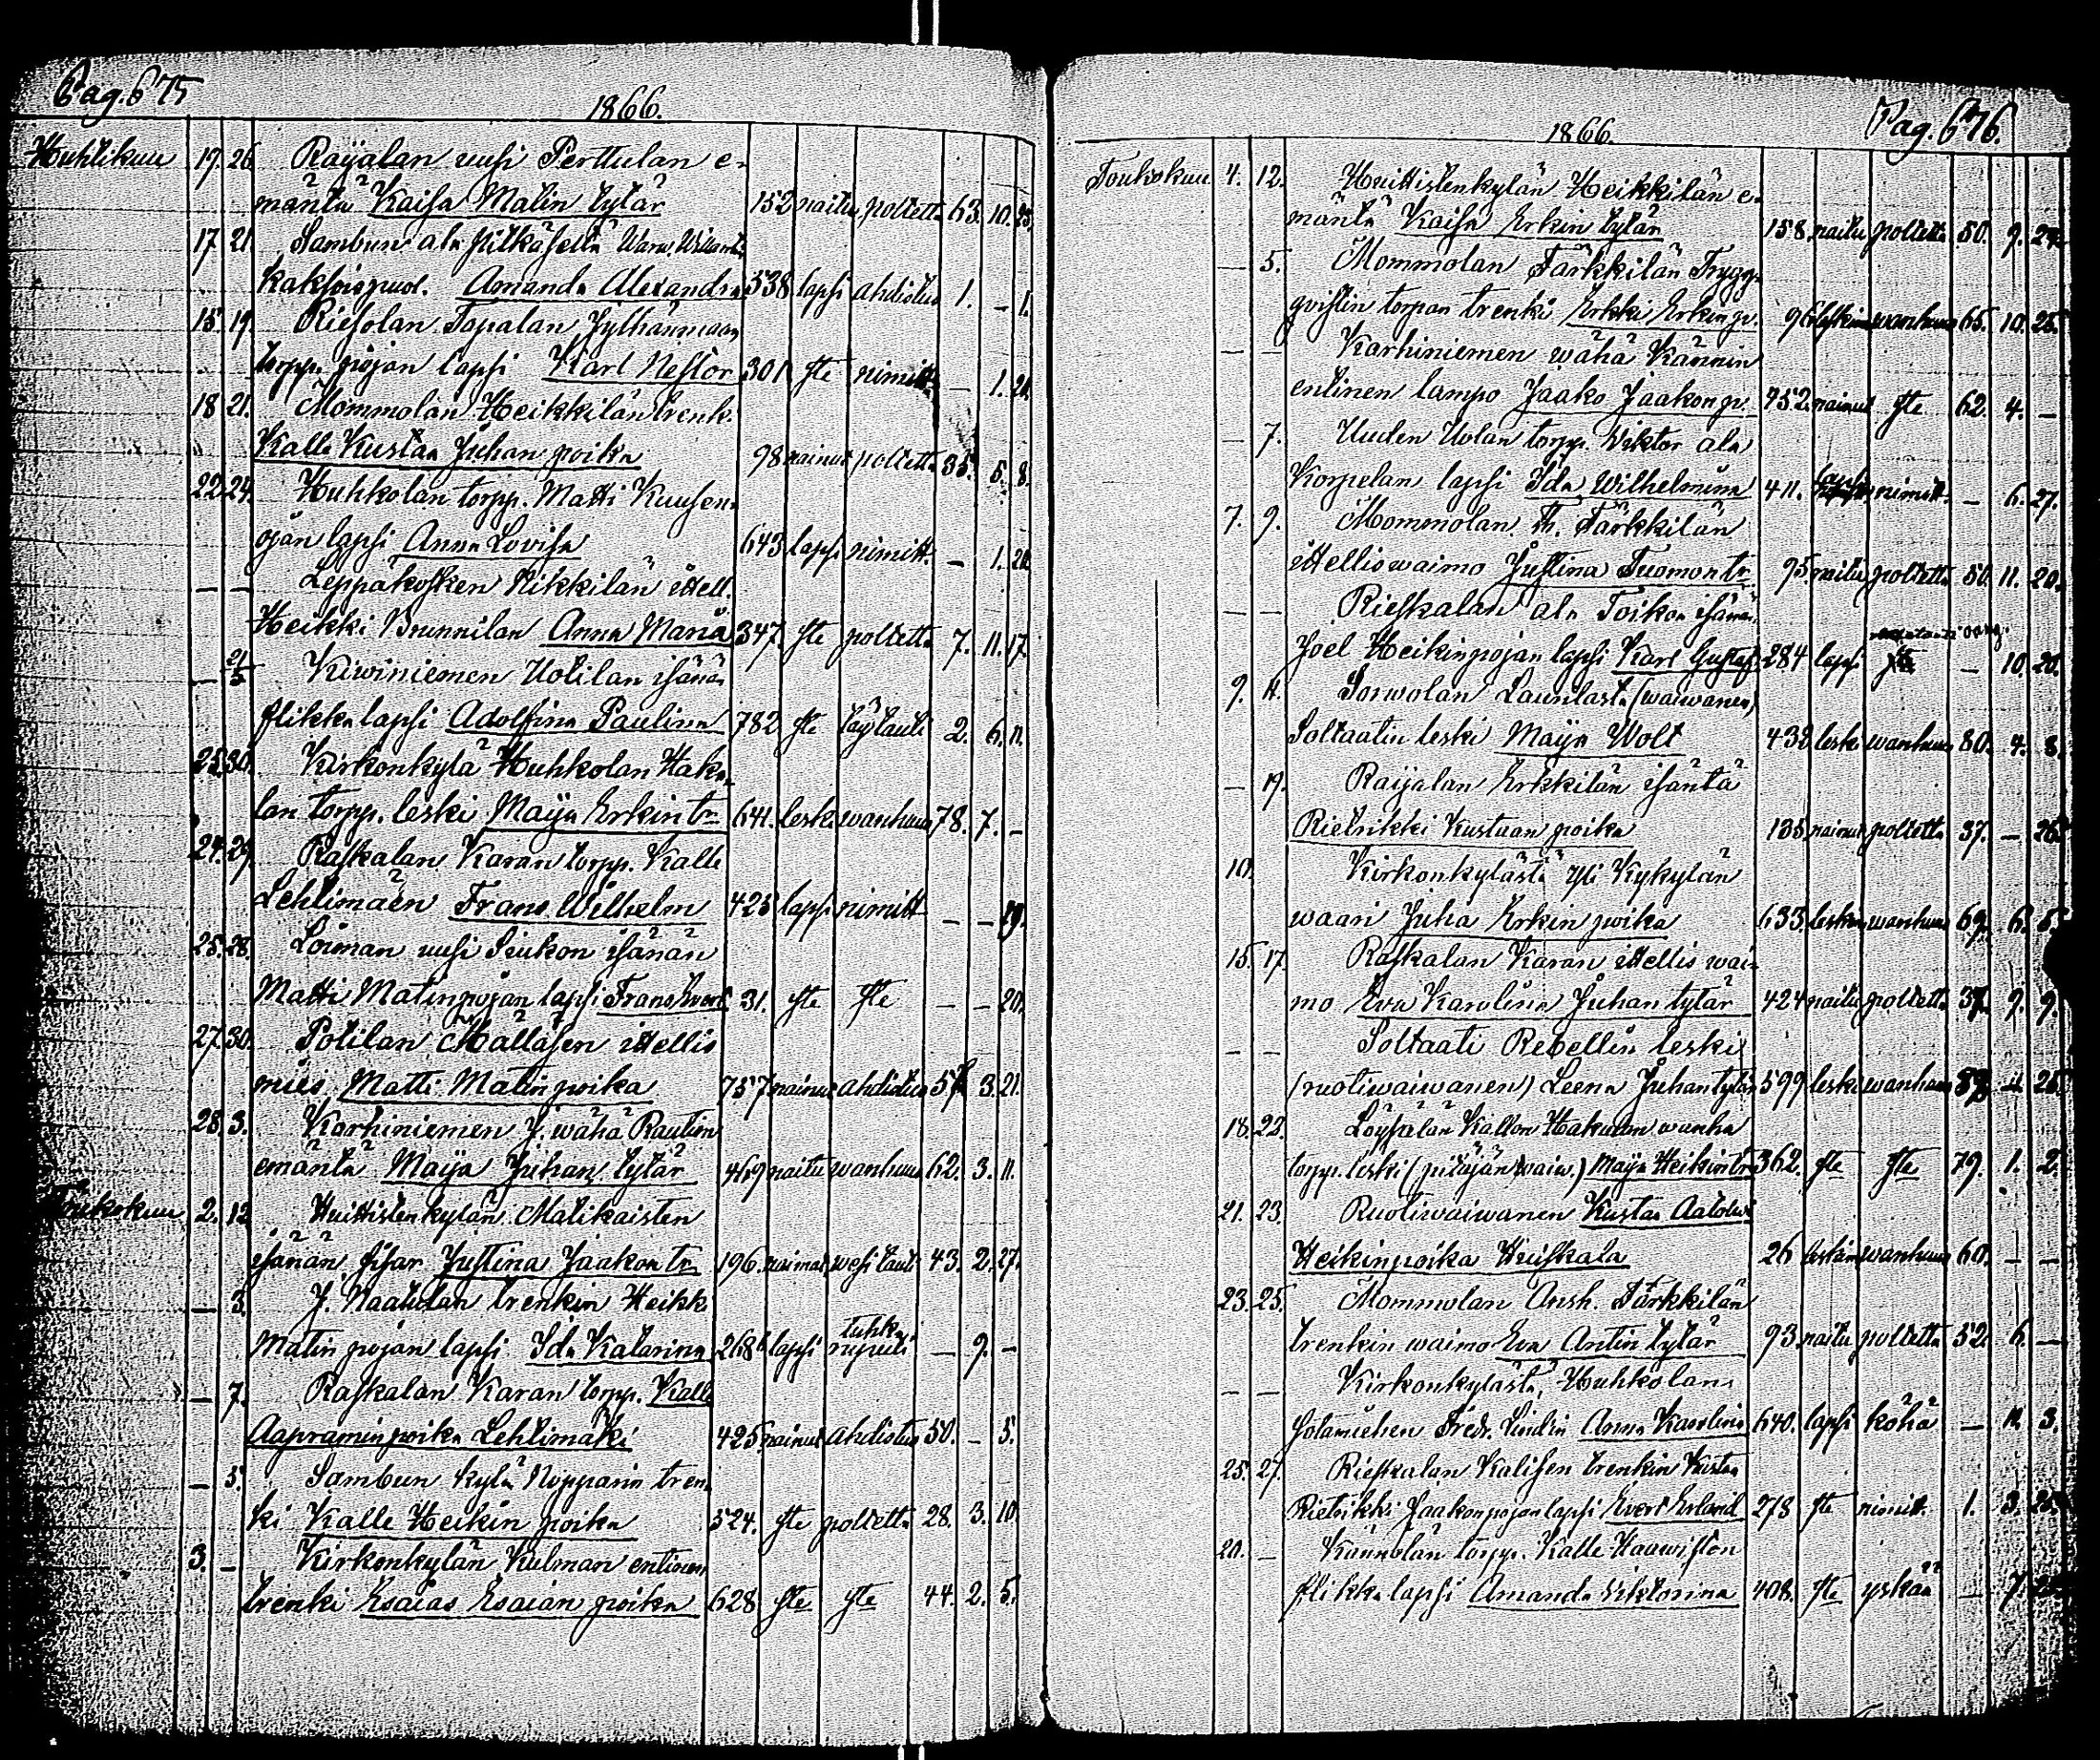 Pag. 675
1866.
Huhtikuu 17. 26. Raijalan uusi Perttulan e-
mäntä Kaisa Matin tytär 152 naitu poltetta 63. 10. 25.
17 21 Sambun ala pitkäsellä Waru.
kaksoispuol. Amanda Alexandra 538 lapsi ahdistus 1. _ 1.
15 19. Riesolan Topalan Jylhänmaan
torpp. pojan lapsi Karl Nestor 301 ste nimitt. _ 1. 21.
18 21. Mommolan Heikkilän trenk.
Kalle Kustaa Juhan poika 98 nainut poltetta 35. 5. 8.
22. 24. Huhkolan torpp. Matti Kuusen-
ojan lapsi Anna Lovisa 643 lapsi nimitt. _ 1. 20.
_ _ Leppäkosken Nikkilän ittell.
Heikki Brunnilan Anna Maria 347. ste poltetta 7. 11. 17.
_ Kiwiniemen Uotilan isänän
flikka lapsi Adolfina Paulina 782 ste läytauti 2. 6. 11.
25. 30. Kirkonkylä Huhkolan Haka-
lan torpp. leski Maija Erkin tr. 641. leski wanhuus 78. 7. _
24. 29. Raskalan Karan torpp. Kalle
Lehtimäen Frans Wilhelm 425 lapsi nimitt _ _ 19.
25. 28. Loiman uusi Seukon isänän
Matti Matinpojan lapsi Frans Evert 31. ste ste _ _ 20.
27. 30. Potilan Mälläsen ittellis
mies Matti Matin poika 757 nainut ahdistus 57 3. 21.
28. 3. Karhiniemen J. wähä Raution
emäntä Maija Juhan tytär 469 naitu wanhuus 62. 3. 11.
Toukokuu 2. 12 Huittistenkylän Matikaisten
isänän sisar Justina Jaakon tr. 196. naimat. wesitauti 43. 2. 27.
_ 3. J. Naatulan trenkin Heikk
Matin pojan lapsi Ida Katarina 268 lapsi tuhka
rupuli _ 9. _
_ 7. Raskalan Karan torpp. Kalle
Aapramin poika Lehtimäki 425. nainut ahdistus 50. _ 5.
_ 5. Sambun kylä Nopparin tren-
ki Kalle Heikin poika 524. ste poltetta 28. 3. 10.
3. _ Kirkonkylän Kulman entinen
trenki Esaias Esaian poika 628 ste ste 44. 2. 5.
1866. Pag. 676.
Toukokuu 4. 12. Huittistenkylän Heikkilän e-
mäntä Kaisa Erkin tytär 158. naitu poltetta 50. 9. 24.
_ 5. Mommolan Tärkkilän Trygg-
qvistin torpan trenki Erkki Erkin p. 96 leskim. wanhuus 65. 10. 25.
_ _ Karhiniemen wähä Kännin
entinen lampo Jaako Jaakon p. 752. nainut ste 62. 4. _
_ 7. Uuden Uolan torpp. Viktor ala
Korpelan lapsi Ida Wilhelmina 411. lapsi nimitt. _ 6. 27.
7. 9. Mommolan Th. Tärkkilän
ittelliswaimo Justina Tuomon tr. 95 naitu poltetta 50. 11. 20.
_ _ Rieskalan ala Toikon isänän
Joel Heikinpojan lapsi Karl Gustaf 284 lapsi _ 10. 20.
9. 11. Sorwolan Launlasta (waiwanen)
Soltaatin leski Maija Wolt 438 leski wanhuus 80. 4. 8.
_ 19. Raijalan Erkkilän isäntä
Rietrikki Kustaan poika 135 nainut poltetta 37. _ 26.
10. Kirkonkylästä yli Kykylän
waari Juha Erkin poika 633. lesken wanhuus 69. 6. 5.
15. 17. Raskalan Karan ittellis wai-
mo Eva Karolina Juhan tytär 424 naitu poltetta 37. 9. 9.
_ _ Soltaati Rebellin leski
(ruotiwaiwanen) Leena Juhan tytär 599 leski wanhuus 25.
18. 22. Löysälän Kallon Hakuion wanha
torpp. leski (pitäjän waiw.) Maija Heikin tr. 362. ste ste 79. 1. 2.
21. 23. Ruotiwaiwanen Kustaa Aatolwi
Heikinpoika Heiskala 26 leskim wanhuus 60. _ _
23. 25. Mommolan Ansh. Tärkkilän
trenkin waimo Eva Antin tytär 93. naitu poltetta 52. 6. _
_ _ Kirkonkylästä, Huhkolan
sotamiehen Fredr. Lindin Anna Karolina 640. lapsi köhä _ 11. 3.
25. 27. Rieskalan Kalisen trenkin Kustaa
Rietrikki Jaakonpojan lapsi Evert Erland 278 ste nimitt. 1. 3. 25.
20. _ Kännölän torpp. Kalle Haawiston
flikka lapsi Amanda Viktorina 408. ste yskään _ 7.